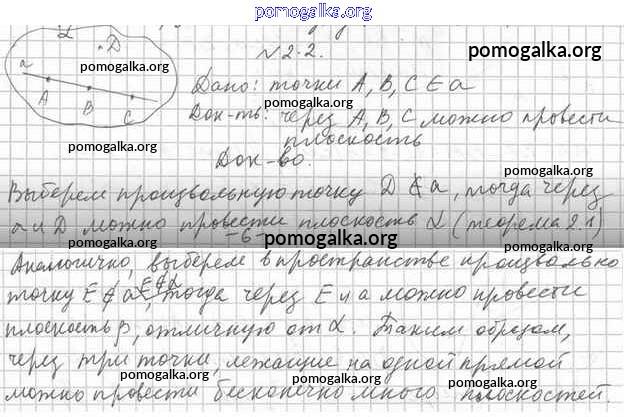 pomogalka.org
№2.2.
pomogalka.org
α
D
pomogalka.org
a
A
B
C
pomogalka.org
Дано: точки A, B, C ∈ a
pomogalka.org
Док-ть: через A, B, C можно провести
плоскость
pomogalka.org
Док-во.
pomogalka.org
Выберем произвольную точку D ∉ a, тогда через
a и D можно провести плоскость α (теорема 2.1)
-6-
pomogalka.org
Аналогично, выберем в пространстве произвольно
точку E ∉ a, E ∉ α, тогда через E и a можно провести
pomogalka.org
плоскость β, отличную от α. Таким образом,
pomogalka.org
через три точки, лежащие на одной прямой
pomogalka.org
можно провести бесконечно много плоскостей.
pomogalka.org